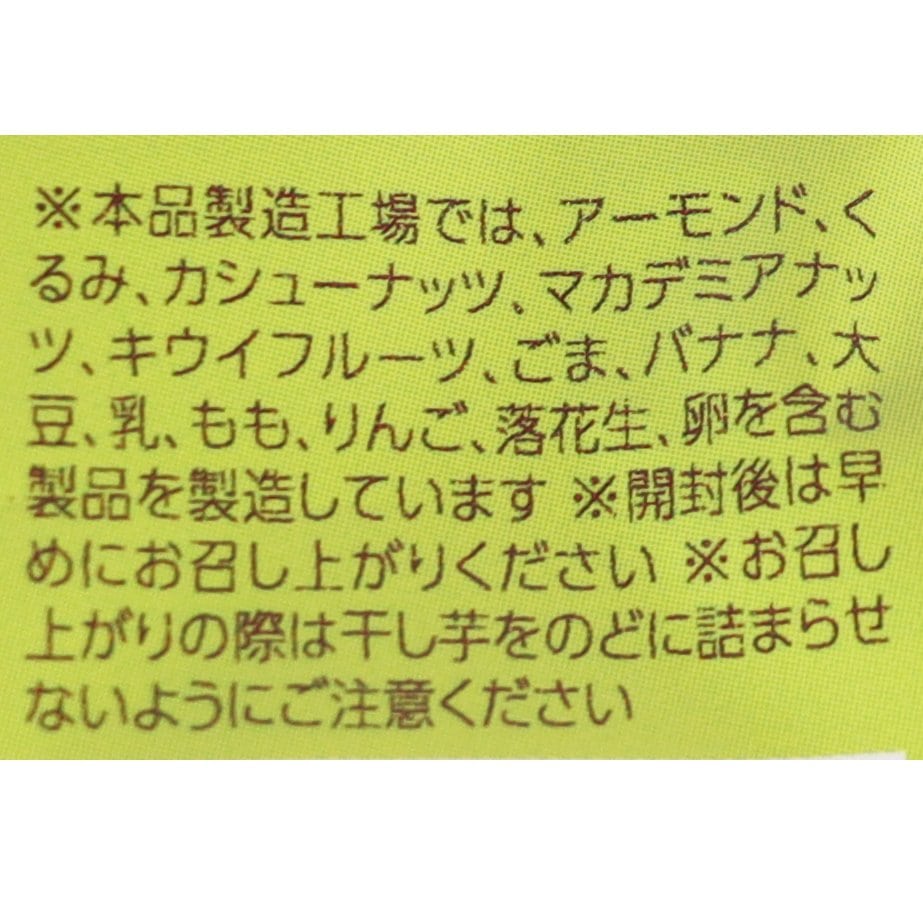 ※本品製造工場では、アーモンド、く
るみ、カシューナッツ、マカデミアナッ
ツ、キウイフルーツ、ごま、バナナ、大
豆、乳、もも、りんご、落花生、卵を含む
製品を製造しています ※開封後は早
めにお召し上がりください ※お召し
上がりの際は干し芋をのどに詰まらせ
ないようにご注意ください